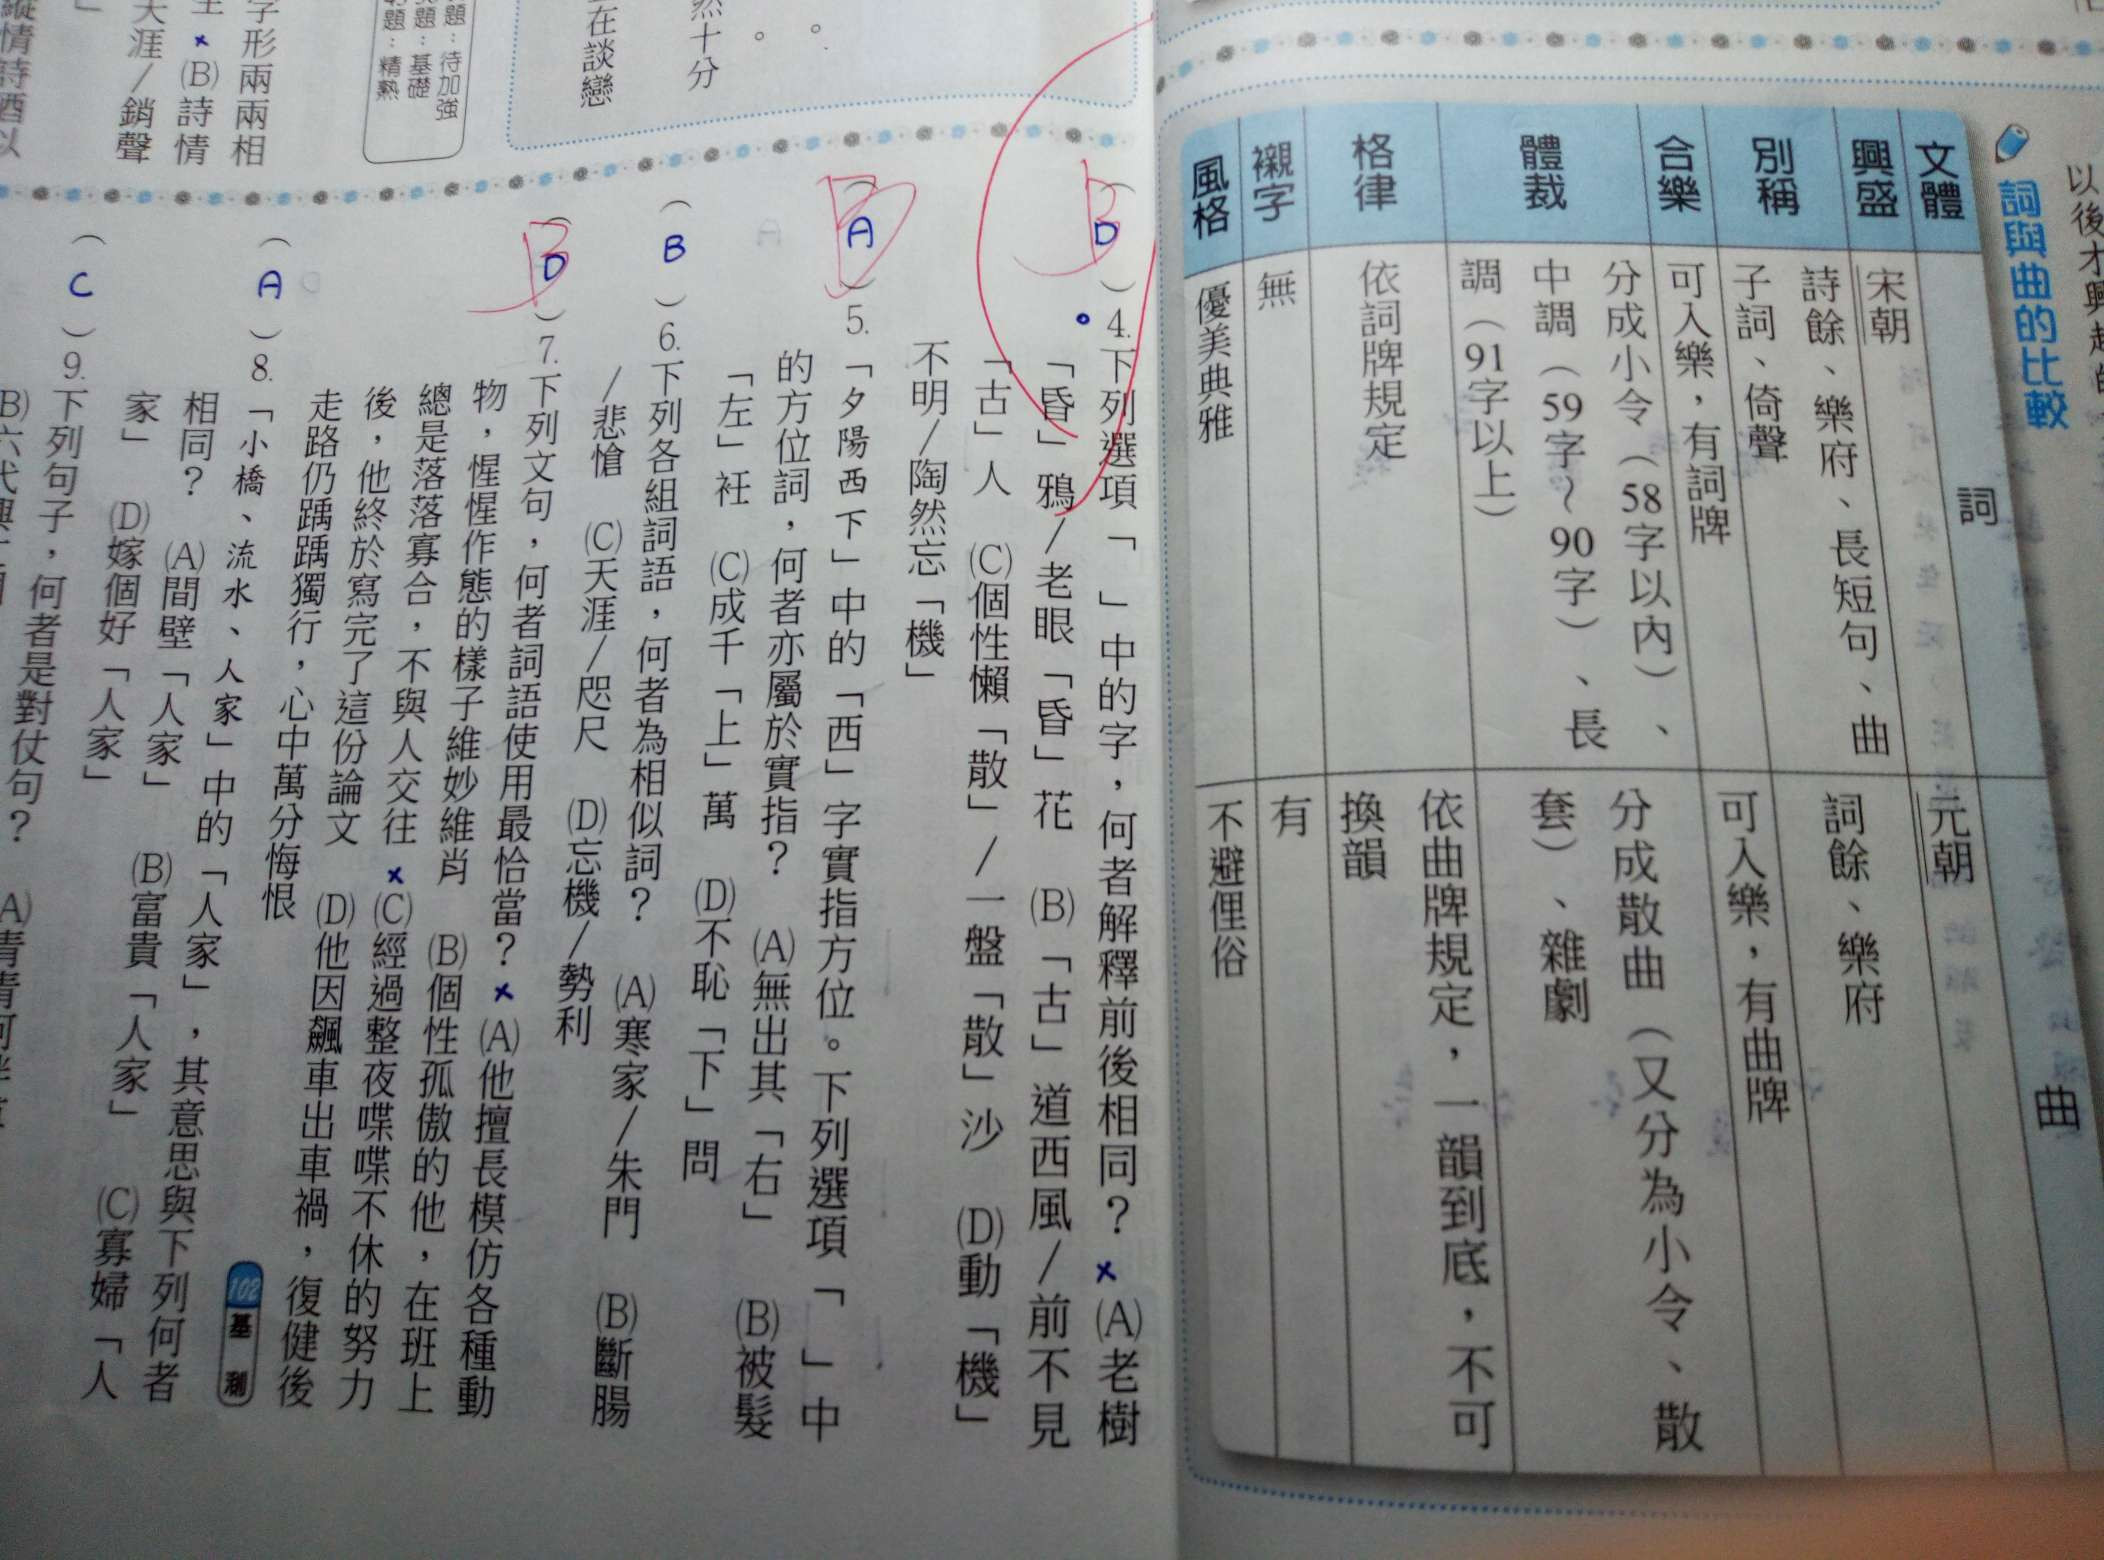 以後才興起的
詞與曲的比較
文體 詞 曲
興盛 宋朝 元朝
別稱 詩餘、樂府、長短句、曲子詞、倚聲 詞餘、樂府
合樂 可入樂,有詞牌 可入樂,有曲牌
體裁 分成小令(58字以內)、中調(59字~90字)、長調(91字以上) 分成散曲(又分為小令、散套)、雜劇
格律 依詞牌規定 依曲牌規定,一韻到底,不可換韻
襯字 無 有
風格 優美典雅 不避俚俗
然十分
。
在談戀
題:待加強
題:基礎
題:精熟
(D)4.下列選項「 」中的字,何者解釋前後相同?×(A)老樹
B
「昏」鴉/老眼「昏」花 (B)「古」道西風/前不見
「古」人 (C)個性懶「散」/一盤「散」沙 (D)動「機」
不明/陶然忘「機」
(A)5.「夕陽西下」中的「西」字實指方位。下列選項「 」中
B
的方位詞,何者亦屬於實指? (A)無出其「右」 (B)被髮
「左」衽 (C)成千「上」萬 (D)不恥「下」問
(B)6.下列各組詞語,何者為相似詞? (A)寒家/朱門 (B)斷腸
/悲愴 (C)天涯/咫尺 (D)忘機/勢利
(D)7.下列文句,何者詞語使用最恰當?×(A)他擅長模仿各種動
B
物,惺惺作態的樣子維妙維肖 (B)個性孤傲的他,在班上
總是落落寡合,不與人交往×(C)經過整夜喋喋不休的努力
後,他終於寫完了這份論文 (D)他因飆車出車禍,復健後
走路仍踽踽獨行,心中萬分悔恨
102基測
(A)8.「小橋、流水、人家」中的「人家」,其意思與下列何者
相同? (A)間壁「人家」 (B)富貴「人家」 (C)寡婦「人
家」 (D)嫁個好「人家」
(C)9.下列句子,何者是對仗句? (A)青青河畔草
字形兩兩相
×(B)詩情
天涯/銷聲
縱情詩酒以